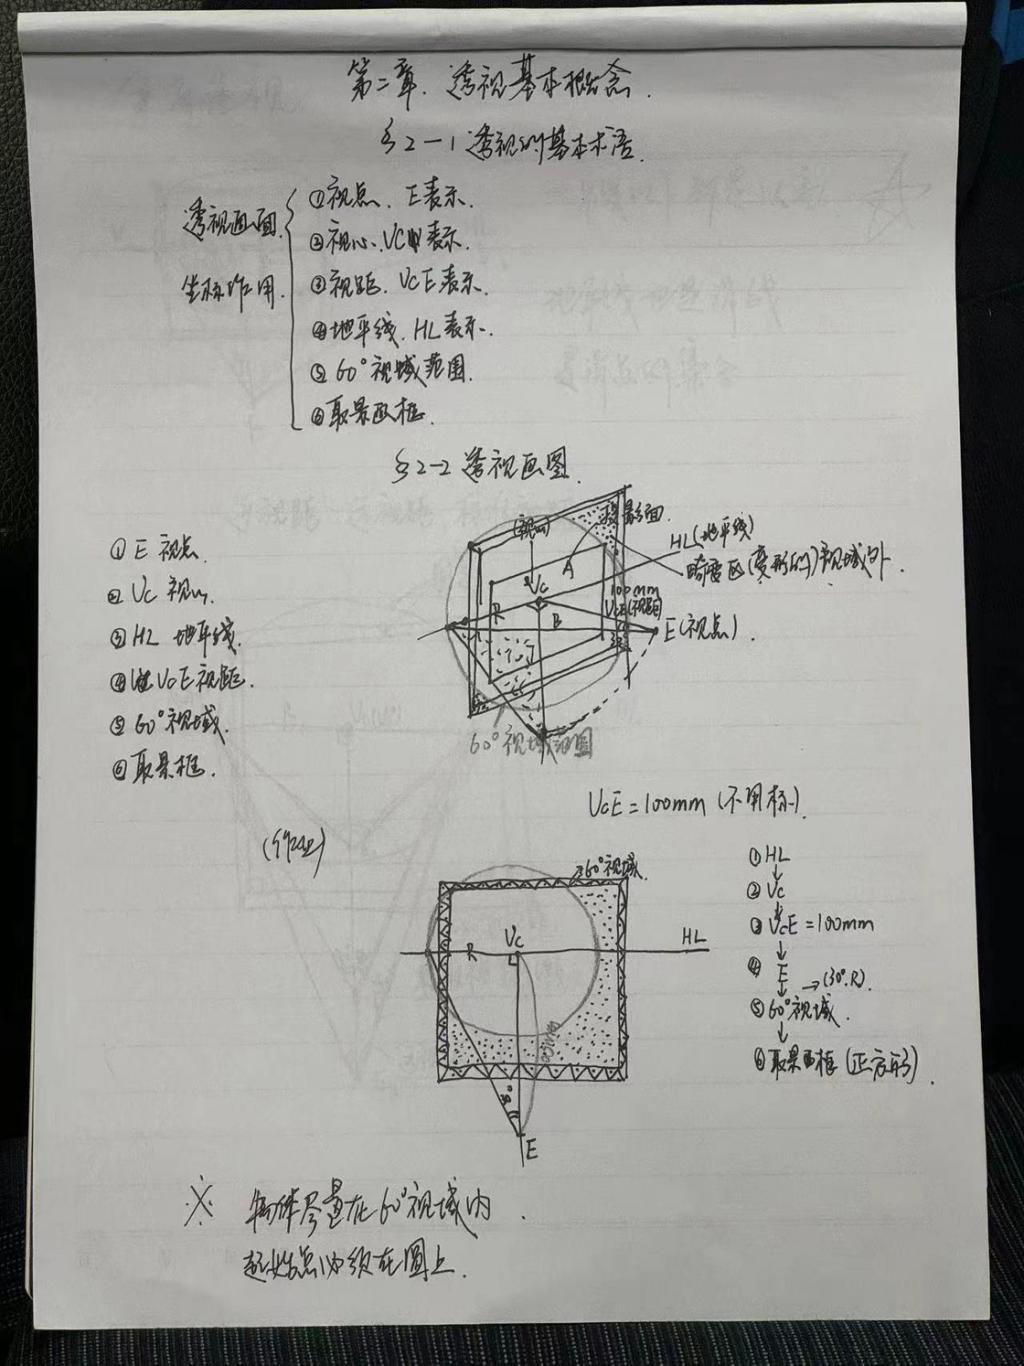 第二章. 透视基本概念.
§2-1 透视的基本术语.
透视画面
坐标作用.
①视点. E表示.
②视心. VC表示.
③视距. VCE表示.
④地平线. HL表示.
⑤60°视域范围.
⑥取景画框.
§2-2 透视画图.
①E 视点.
②VC 视心.
③HL 地平线.
④VCE视距.
⑤60°视域.
⑥取景框.
(视心)
投影面.
HL(地平线)
畸变区(变形的)视域外.
A
VC
100mm
VCE(视距)
R
B
E(视点).
60°视域范围
VCE=100mm(不用标).
(作业)
60°视域.
R
VC
HL
100mm
30°
E
①HL
②VC
③VCE=100mm
④E
→(30°.R).
⑤60°视域.
⑥取景画框(正方形).
※ 物体尽量在60°视域内.
起始点必须在圆上.